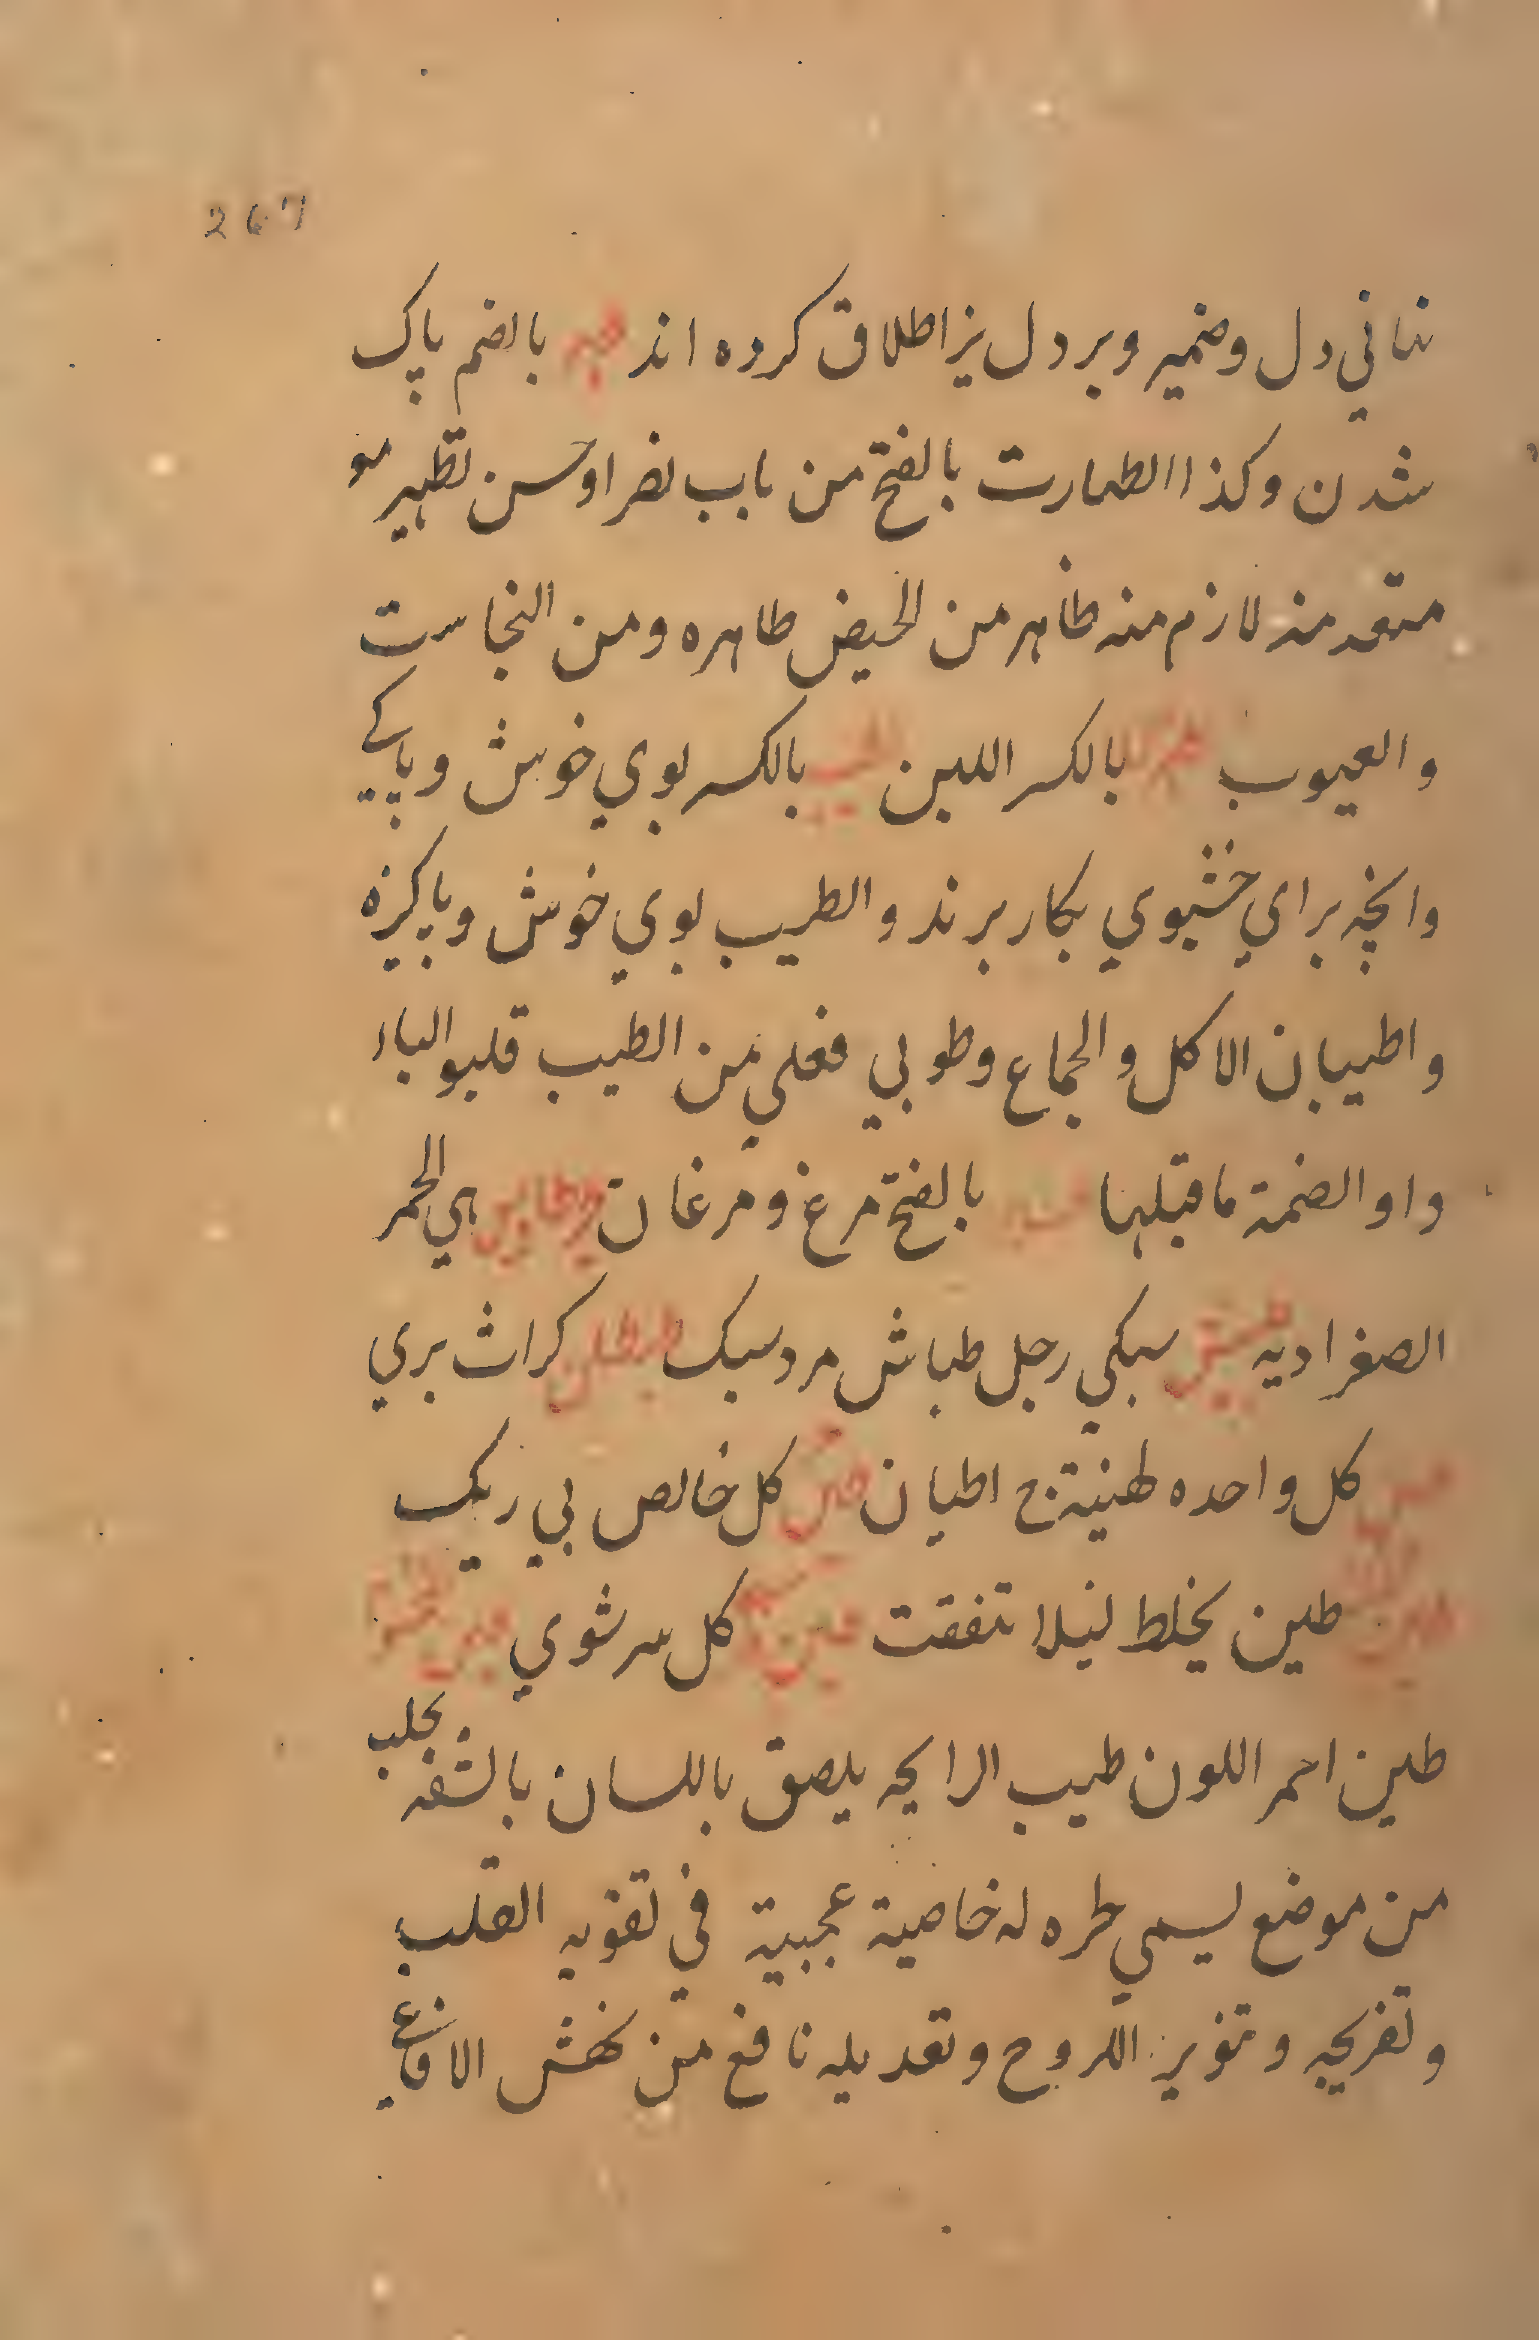 267
نهاني دل وضمير وبر دل نيز اطلاق كرده اند طهر بالضم پاك
شدن وكذا الطهارت بالفتح من باب نصر اوحسن تطهير هو
متعد منه لازم منه طاهر من الحيض طاهره ومن النجاست
والعيوب بالكسر اللبن الطيب بالكسر بوي خوش وپاكي
وانچه براي خشبوي بكار برند والطيب بوي خوش وپاكيزه
واطيبان الاكل والجماع وطوبي فعلي من الطيب قلبو الياء
واو الضمة ما قبلها طير بالفتح مرغ ومرغان هي الحمر
الصفراديه طيش سبكي رجل طياش مرد سبك كراث بري
طين كل واحده طينة ج اطيان طين كل خالص بي ريك
طين يخلط ليلا تنفقت طين كل سرشوي طين
طين احمر اللون طيب الرايحه يلصق باللسان بالشفه يجلب
من موضع يسمي طره له خاصية عجيبة في تقويه القلب
وتفريحه وتنوير الروح وتعديله نافع من نهش الافاعي